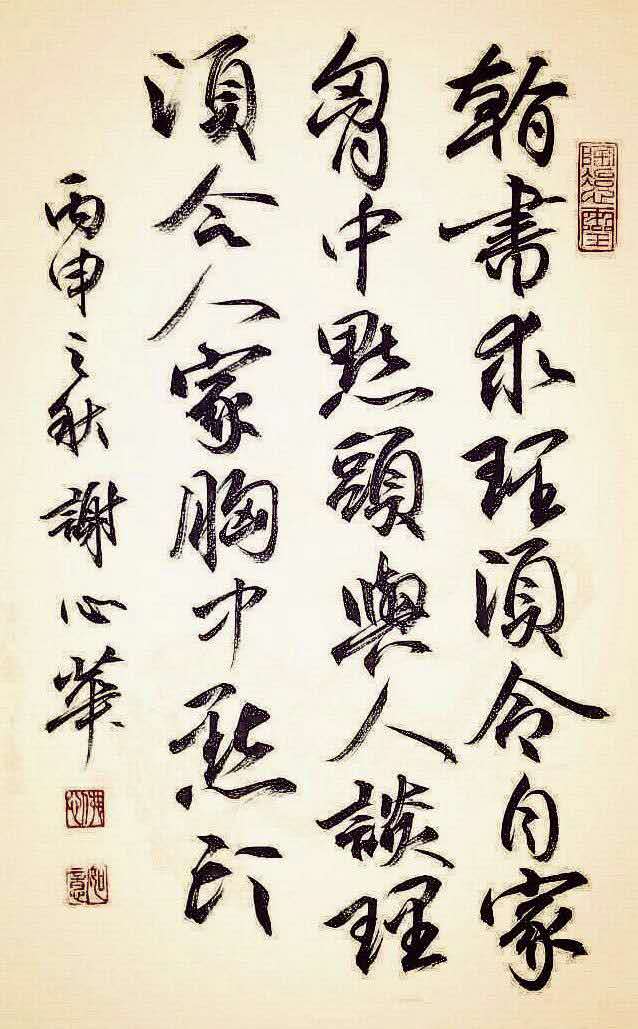 看書求理須令自家
胷中點頭與人談理
須令人家胸中點印
丙申之秋謝心華